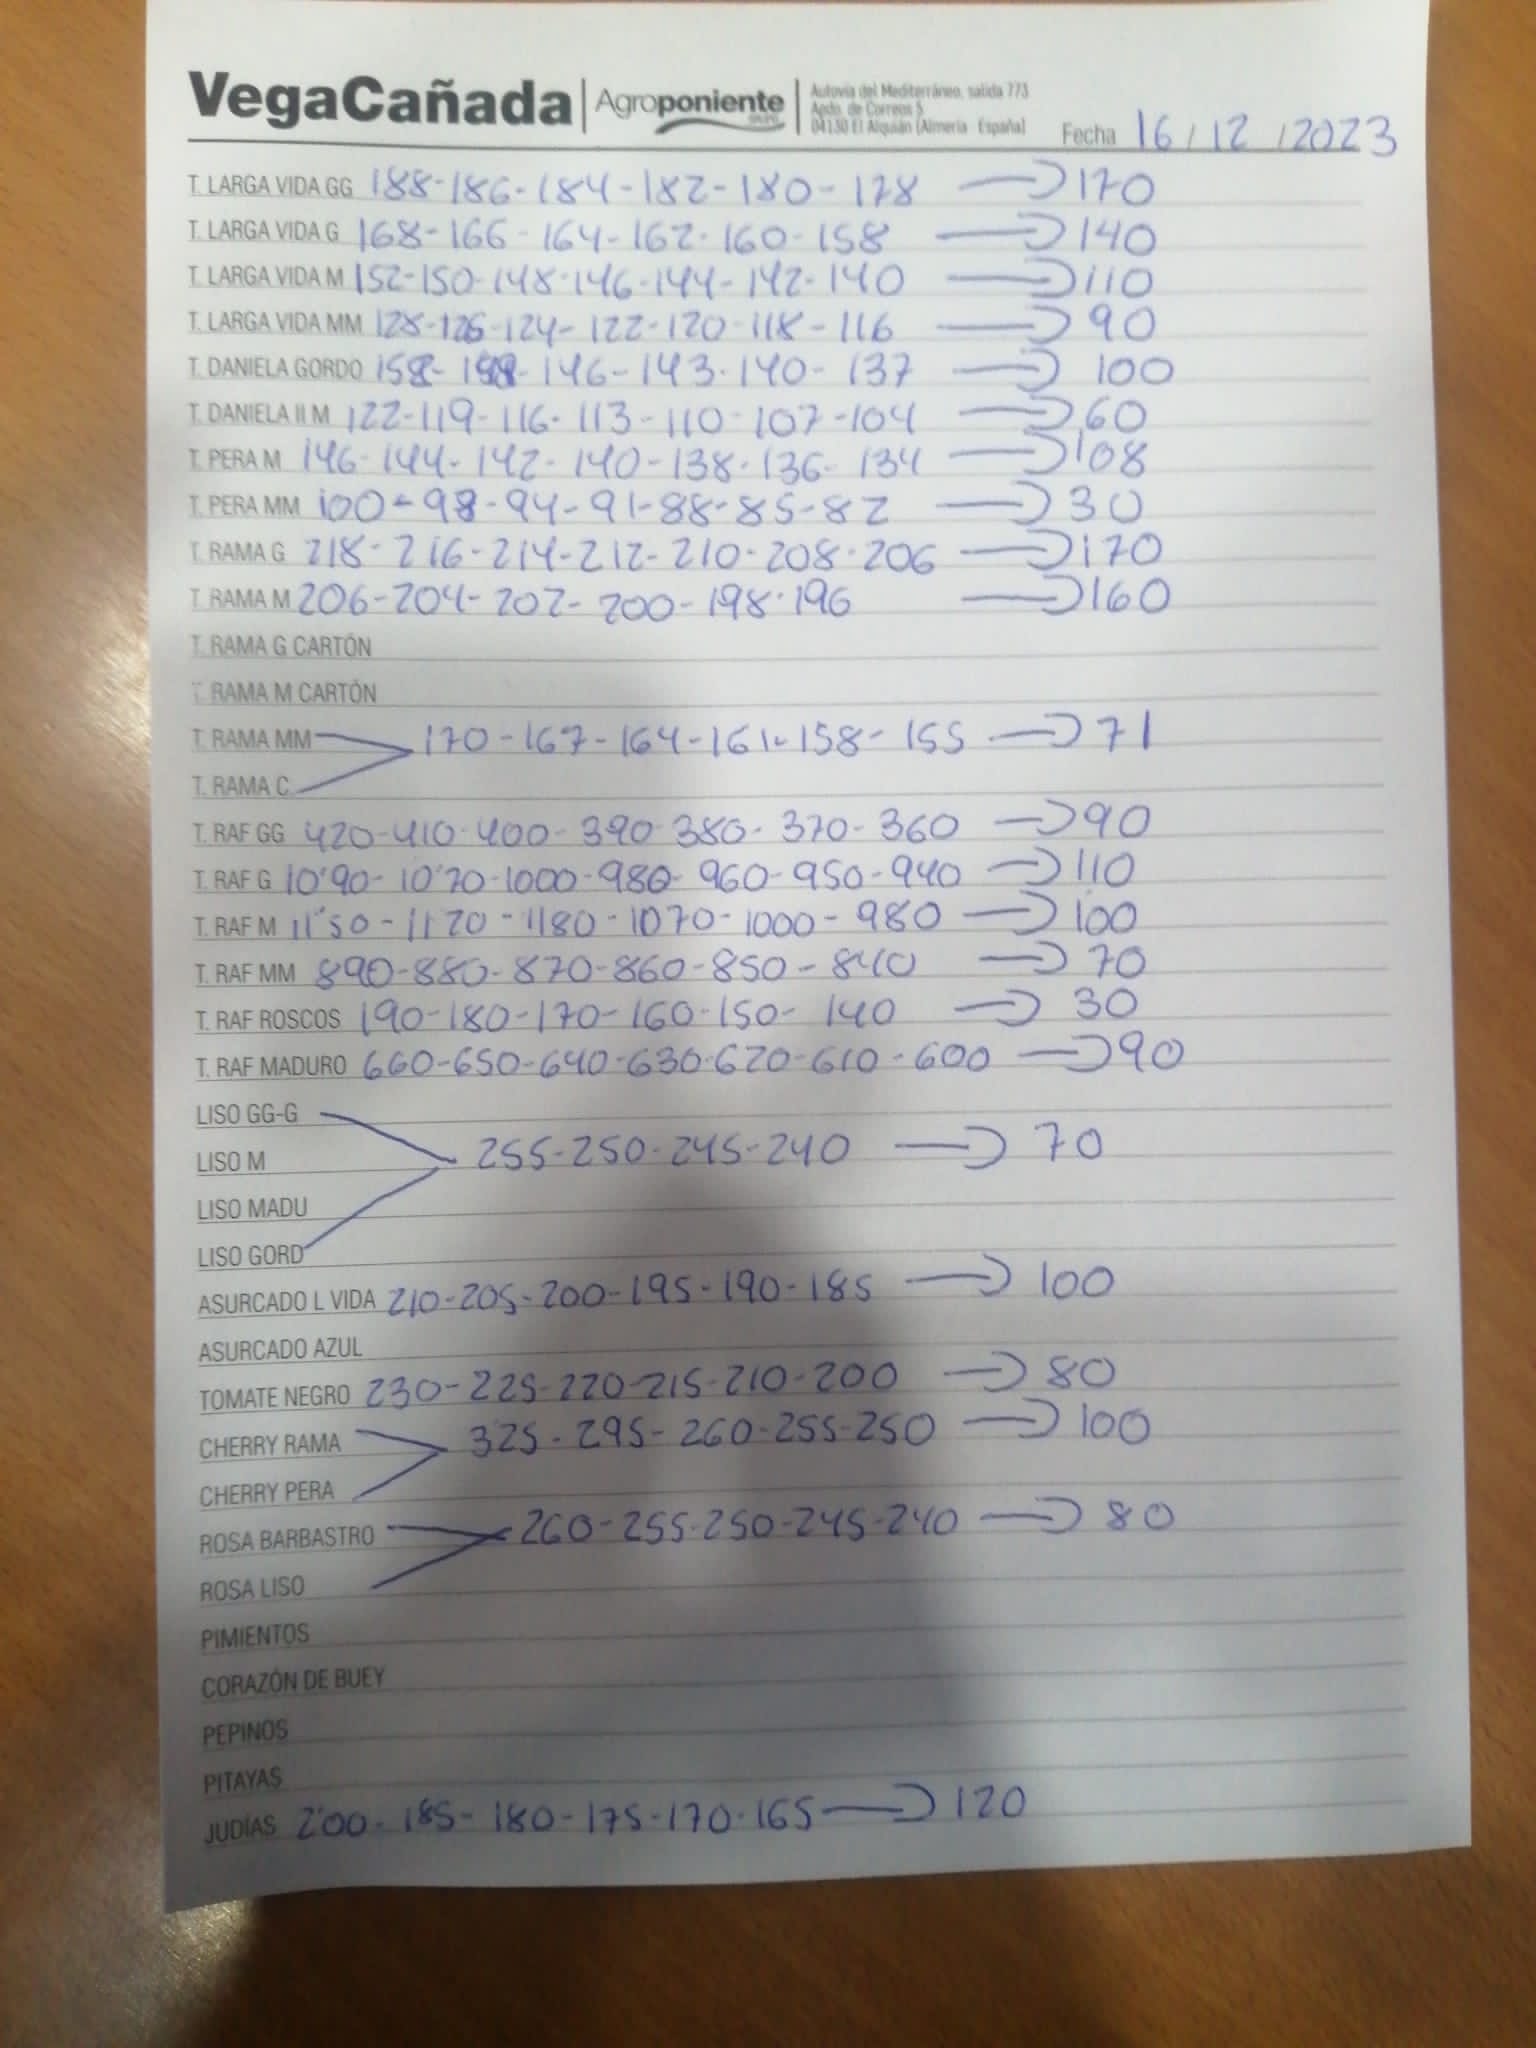 VegaCañada | Agroponiente GRUPO | Autovía del Mediterráneo, salida 773
Apdo. de Correos 5
04130 El Alquián (Almería España) Fecha 16/12/2023
T. LARGA VIDA GG 188-186-184-182-180-178 → 170
T. LARGA VIDA G 168-166-164-162-160-158 → 140
T. LARGA VIDA M 152-150-148-146-144-142-140 → 110
T. LARGA VIDA MM 128-126-124-122-120-118-116 → 90
T. DANIELA GORDO 158- -146-143-140-137 → 100
T. DANIELA II M 122-119-116-113-110-107-104 → 60
T. PERA M 146-144-142-140-138-136-134 → 108
T. PERA MM 100-98-94-91-88-85-82 → 30
T. RAMA G 218-216-214-212-210-208-206 → 170
T. RAMA M 206-204-202-200-198-196 → 160
T. RAMA G CARTÓN
T. RAMA M CARTÓN
T. RAMA MM 170-167-164-161-158-155 → 71
T. RAMA C
T. RAF GG 420-410-400-390-380-370-360 → 90
T. RAF G 10'90-10'70-1000-980-960-950-940 → 110
T. RAF M 11'50-1120-1180-1070-1000-980 → 100
T. RAF MM 890-880-870-860-850-840 → 70
T. RAF ROSCOS 190-180-170-160-150-140 → 30
T. RAF MADURO 660-650-640-630-620-610-600 → 90
LISO GG-G
LISO M 255-250-245-240 → 70
LISO MADU
LISO GORD
ASURCADO L VIDA 210-205-200-195-190-185 → 100
ASURCADO AZUL
TOMATE NEGRO 230-225-220-215-210-200 → 80
CHERRY RAMA 325-295-260-255-250 → 100
CHERRY PERA
ROSA BARBASTRO 260-255-250-245-240 → 80
ROSA LISO
PIMIENTOS
CORAZÓN DE BUEY
PEPINOS
PITAYAS
JUDÍAS 2'00-185-180-175-170-165 → 120